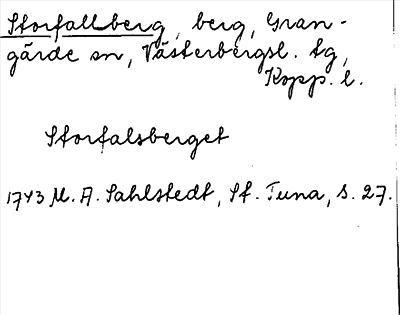 Storfallberg, berg, Gran-
gärde sn, Västerbergsl. tg,
Kopp. l.
Storfalsberget
1743 M. A. Sahlstedt, St. Tuna, s. 27.